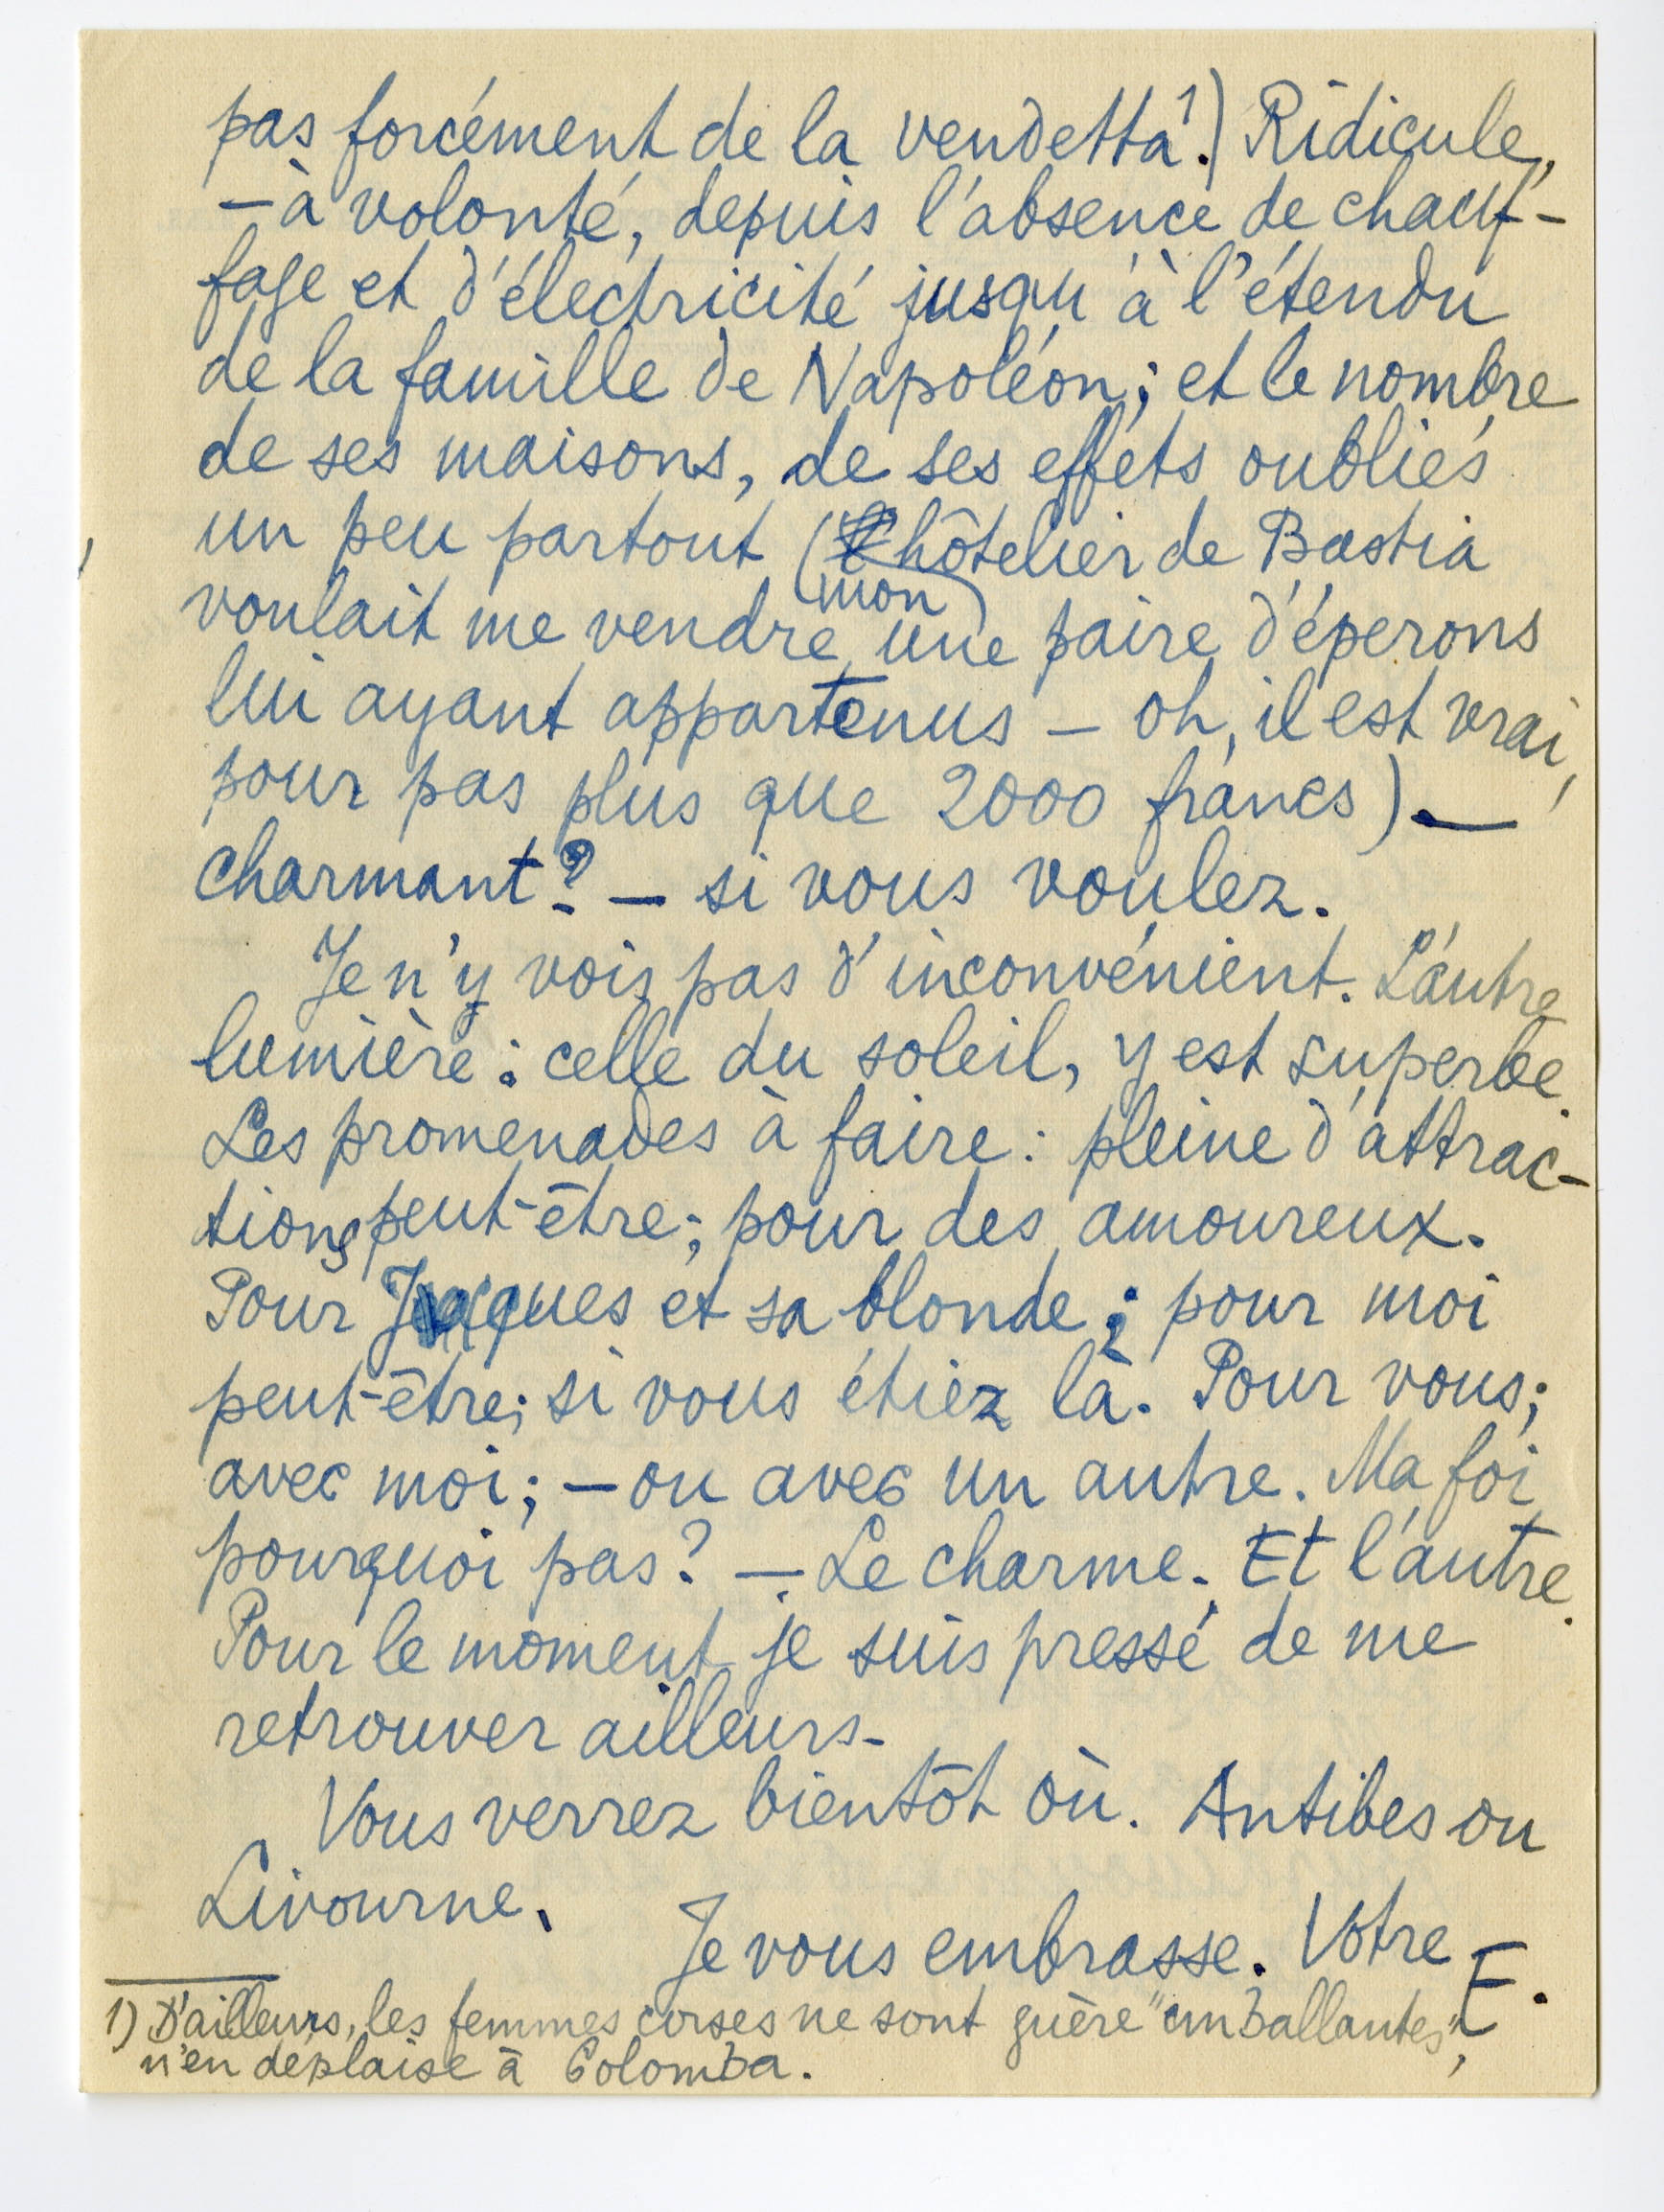 pas forcément de la vendetta¹.) Ridicule,
– à volonté, depuis l'absence de chauf-
fage et d'électricité jusqu'à l'étendu
de la famille de Napoléon; et le nombre
de ses maisons, de ses effets oubliés
un peu partout (mon hôtelier de Bastia
voulait me vendre une paire d'éperons
lui ayant appartenus – oh, il est vrai,
pour pas plus que 2000 francs). —
charmant? – si vous voulez.
Je n'y vois pas d'inconvénient. L'autre
lumière: celle du soleil, y est superbe.
Les promenades à faire: pleine d'attrac-
tions peut-être; pour des amoureux.
Pour Jacques et sa blonde; pour moi
peut-être; si vous étiez là. Pour vous;
avec moi; – ou avec un autre. Ma foi
pourquoi pas? – Le charme. Et l'autre.
Pour le moment je suis pressé de me
retrouver ailleurs.
Vous verrez bientôt où. Antibes ou
Livourne.
Je vous embrasse. Votre E.
1) D'ailleurs, les femmes corses ne sont guère "emballantes",
n'en déplaise à Colomba.